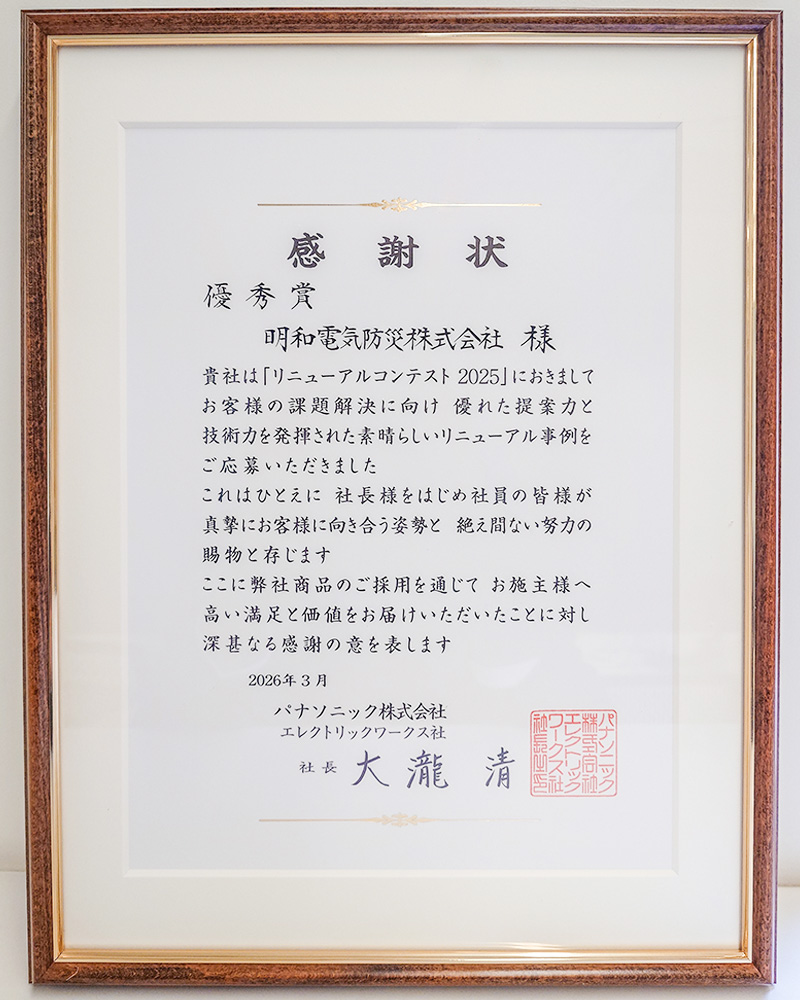 感謝状
優秀賞
明和電気防災株式会社 様
貴社は「リニューアルコンテスト 2025」におきまして
お客様の課題解決に向け 優れた提案力と
技術力を発揮された素晴らしいリニューアル事例を
ご応募いただきました
これはひとえに 社長様をはじめ社員の皆様が
真摯にお客様に向き合う姿勢と 絶え間ない努力の
賜物と存じます
ここに弊社商品のご採用を通じて お施主様へ
高い満足と価値をお届けいただいたことに対し
深甚なる感謝の意を表します
2026年3月
パナソニック株式会社
エレクトリックワークス社
社長 大瀧 清
パナソニック
株式会社
エレクトリック
ワークス社
社長之印